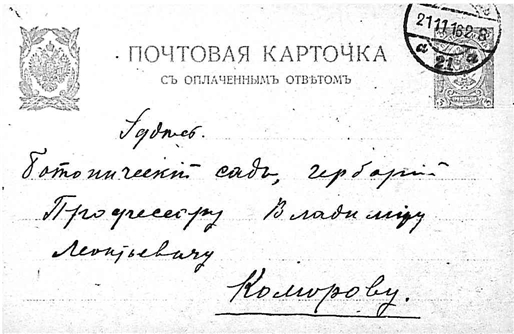 21 11 16 2. 8
21
ПОЧТОВАЯ КАРТОЧКА
СЪ ОПЛАЧЕННЫМЪ ОТВѢТОМЪ
Здѣсь.
Ботаническій садъ, гербарій
Профессору Владиміру
Леонтьевичу
Комарову.